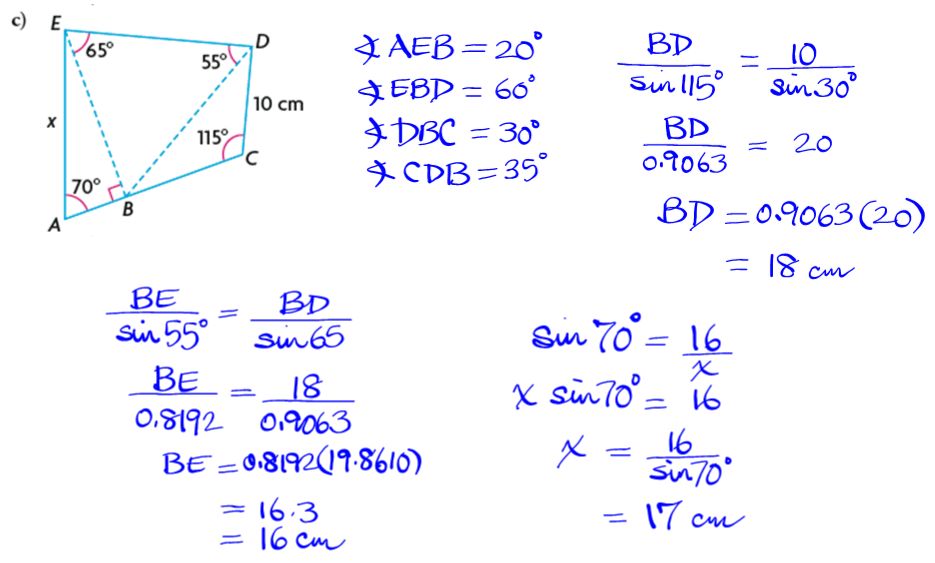 c)
E
65°
D
55°
x
10 cm
115°
C
70°
B
A
∡ AEB = 20°
∡ EBD = 60°
∡ DBC = 30°
∡ CDB = 35°
BD / sin 115° = 10 / sin 30°
BD / 0.9063 = 20
BD = 0.9063(20)
= 18 cm
BE / sin 55° = BD / sin 65
BE / 0.8192 = 18 / 0.9063
BE = 0.8192(19.8610)
= 16.3
= 16 cm
sin 70° = 16 / x
x sin 70° = 16
x = 16 / sin 70°
= 17 cm